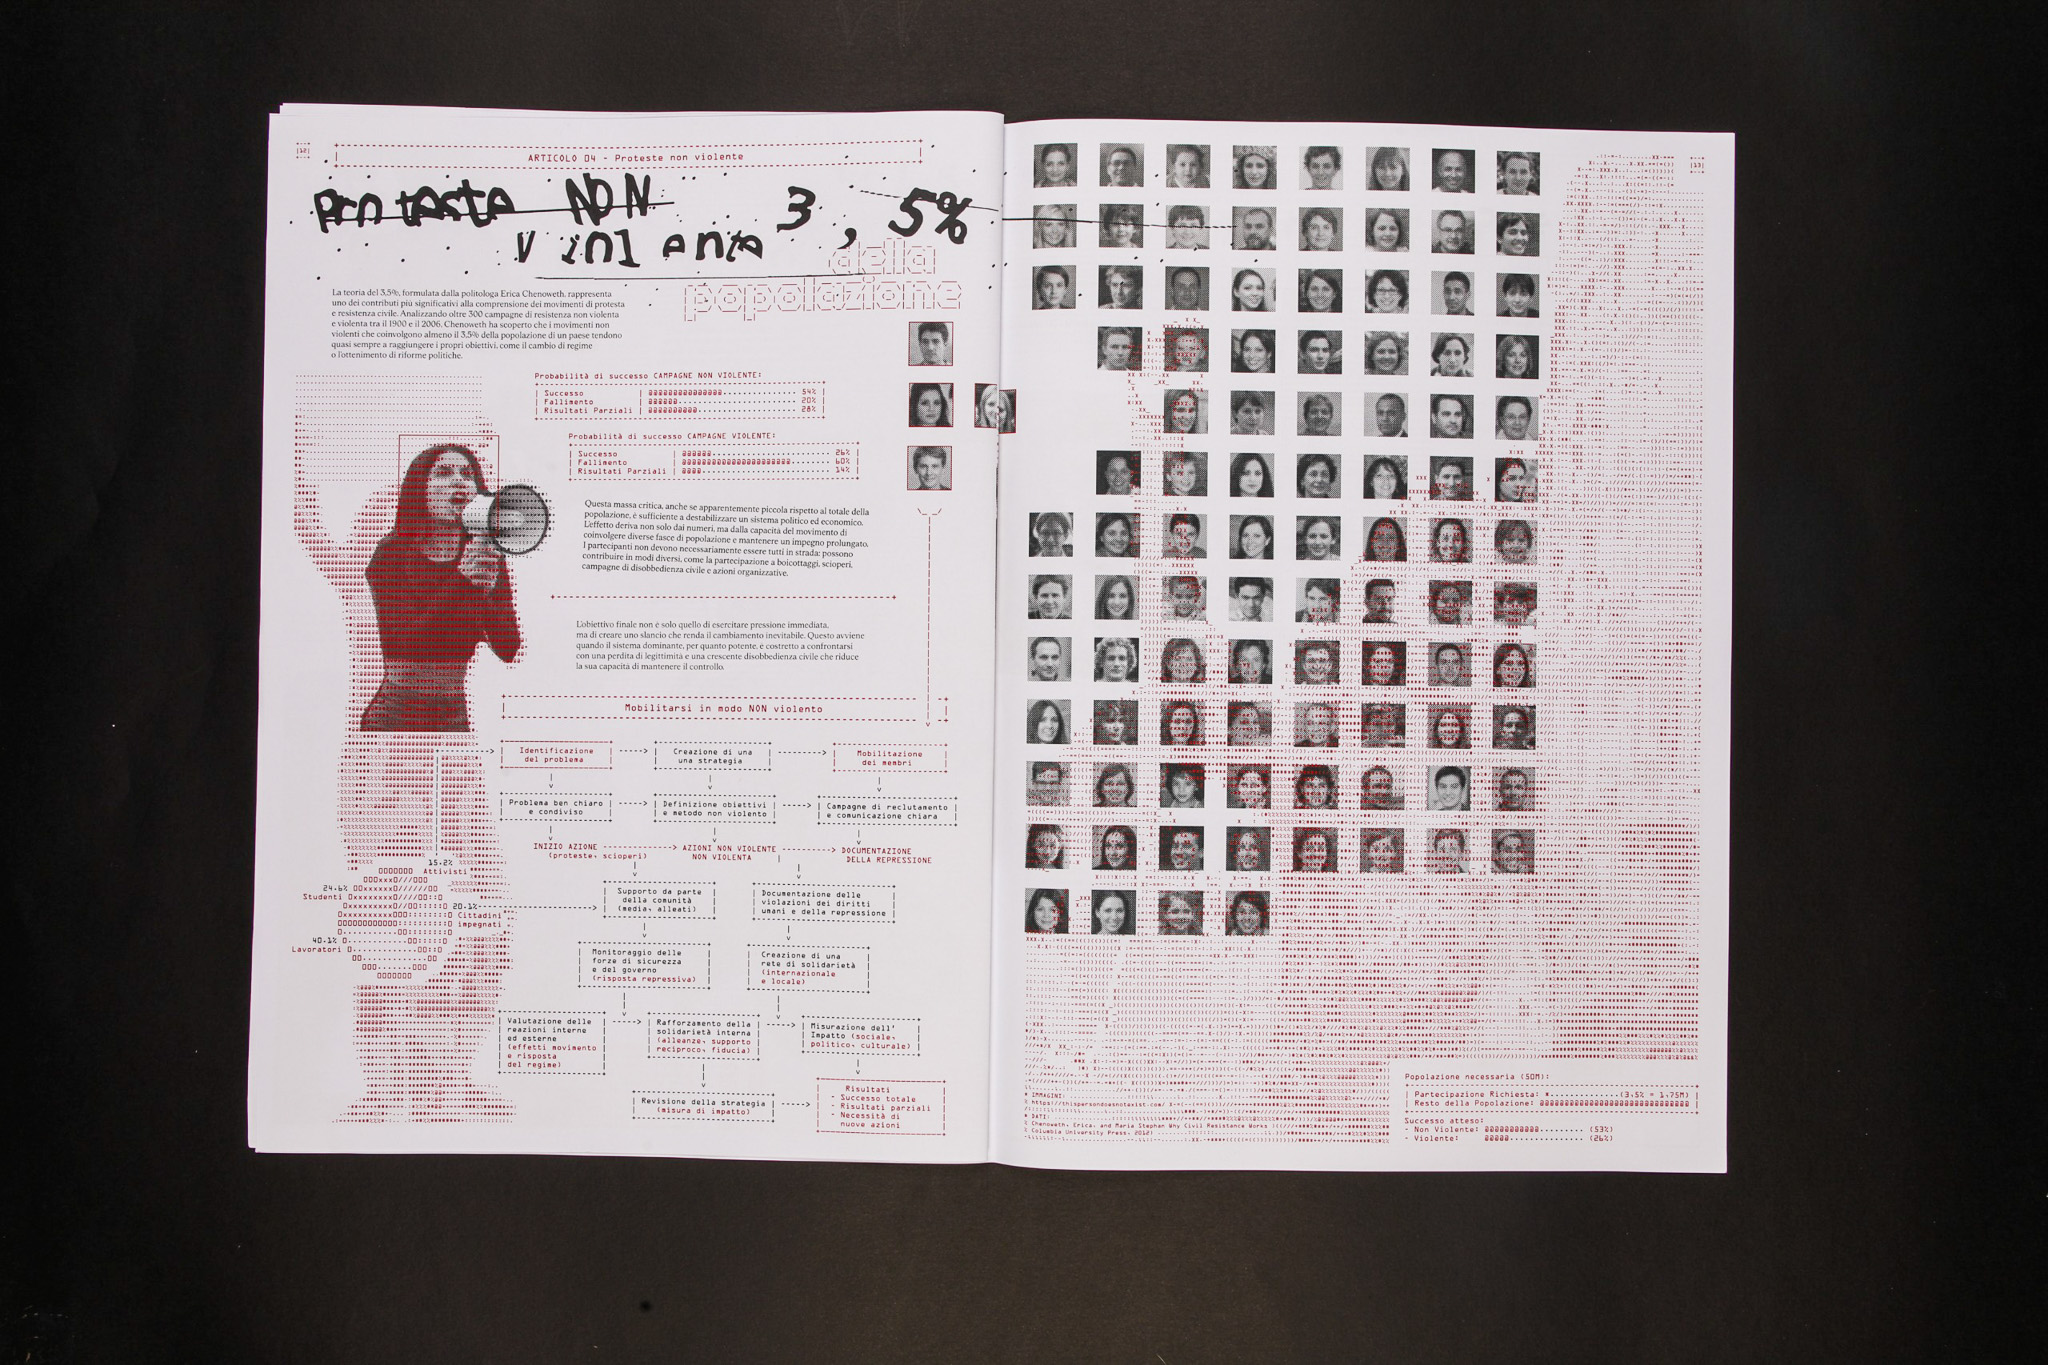 |12|
ARTICOLO 04 - Proteste non violente
|13|
Proteste NON
violente
3,5%
della
popolazione
La teoria del 3,5%, formulata dalla politologa Erica Chenoweth, rappresenta
uno dei contributi più significativi alla comprensione dei movimenti di protesta
e resistenza civile. Analizzando oltre 300 campagne di resistenza non violenta
e violenta tra il 1900 e il 2006, Chenoweth ha scoperto che i movimenti non
violenti che coinvolgono almeno il 3,5% della popolazione di un paese tendono
quasi sempre a raggiungere i propri obiettivi, come il cambio di regime
o l'ottenimento di riforme politiche.
Probabilità di successo CAMPAGNE NON VIOLENTE:
Successo 54%
Fallimento 20%
Risultati Parziali 28%
Probabilità di successo CAMPAGNE VIOLENTE:
Successo 26%
Fallimento 60%
Risultati Parziali 14%
Questa massa critica, anche se apparentemente piccola rispetto al totale della
popolazione, è sufficiente a destabilizzare un sistema politico ed economico.
L'effetto deriva non solo dai numeri, ma dalla capacità del movimento di
coinvolgere diverse fasce di popolazione e mantenere un impegno prolungato.
I partecipanti non devono necessariamente essere tutti in strada: possono
contribuire in modi diversi, come la partecipazione a boicottaggi, scioperi,
campagne di disobbedienza civile e azioni organizzative.
L'obiettivo finale non è solo quello di esercitare pressione immediata,
ma di creare uno slancio che renda il cambiamento inevitabile. Questo avviene
quando il sistema dominante, per quanto potente, è costretto a confrontarsi
con una perdita di legittimità e una crescente disobbedienza civile che riduce
la sua capacità di mantenere il controllo.
Mobilitarsi in modo NON violento
Identificazione
del problema
Creazione di una
una strategia
Mobilitazione
dei membri
Problema ben chiaro
e condiviso
Definizione obiettivi
e metodo non violento
Campagne di reclutamento
e comunicazione chiara
INIZIO AZIONE
(proteste, scioperi)
AZIONI NON VIOLENTE
NON VIOLENTA
DOCUMENTAZIONE
DELLA REPRESSIONE
15.2%
Attivisti
24.6%
Studenti
20.1%
Cittadini
impegnati
40.1%
Lavoratori
Supporto da parte
della comunità
(media, alleati)
Documentazione delle
violazioni dei diritti
umani e della repressione
Monitoraggio delle
forze di sicurezza
e del governo
(risposta repressiva)
Creazione di una
rete di solidarietà
(internazionale
e locale)
Valutazione delle
reazioni interne
ed esterne
(effetti movimento
e risposta
del regime)
Rafforzamento della
solidarietà interna
(alleanze, supporto
reciproco, fiducia)
Misurazione dell'
Impatto (sociale,
politico, culturale)
Revisione della strategia
(misura di impatto)
Risultati
- Successo totale
- Risultati parziali
- Necessità di
nuove azioni
IMMAGINI:
https://thispersondoesnotexist.com/
DATI:
Chenoweth, Erica, and Maria Stephan Why Civil Resistance Works
Columbia University Press, 2012)
Popolazione necessaria (50M):
Partecipazione Richiesta: (3.5% = 1.75M)
Resto della Popolazione:
Successo atteso:
- Non Violente: (53%)
- Violente: (26%)